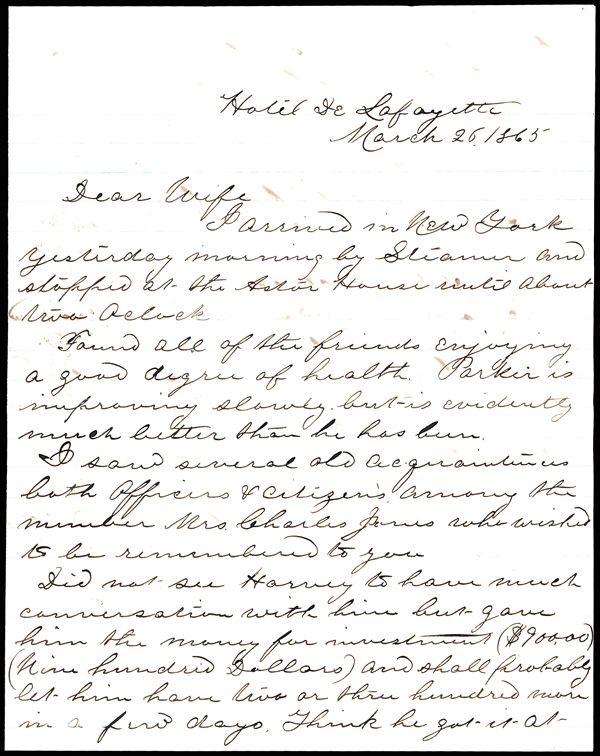 Hotel De Lafayette
March 26, 1865
Dear Wife
I arrived in New York
yesterday morning by Steamer and
stopped at the Astor House until about
two Oclock
Found all of the friends enjoying
a good degree of health. Parker is
improving slowly but is evidently
much better than he has been.
I saw several old acquaintences
both Officers & citizens, among the
number Mrs. Charles Jones who wished
to be remembered to you
Did not see Harvey to have much
conversation with him but gave
him the money for investment ($900.00)
(Nine hundred Dollars) and shall probably
let him have two or three hundred more
in a few days. Think he got it at